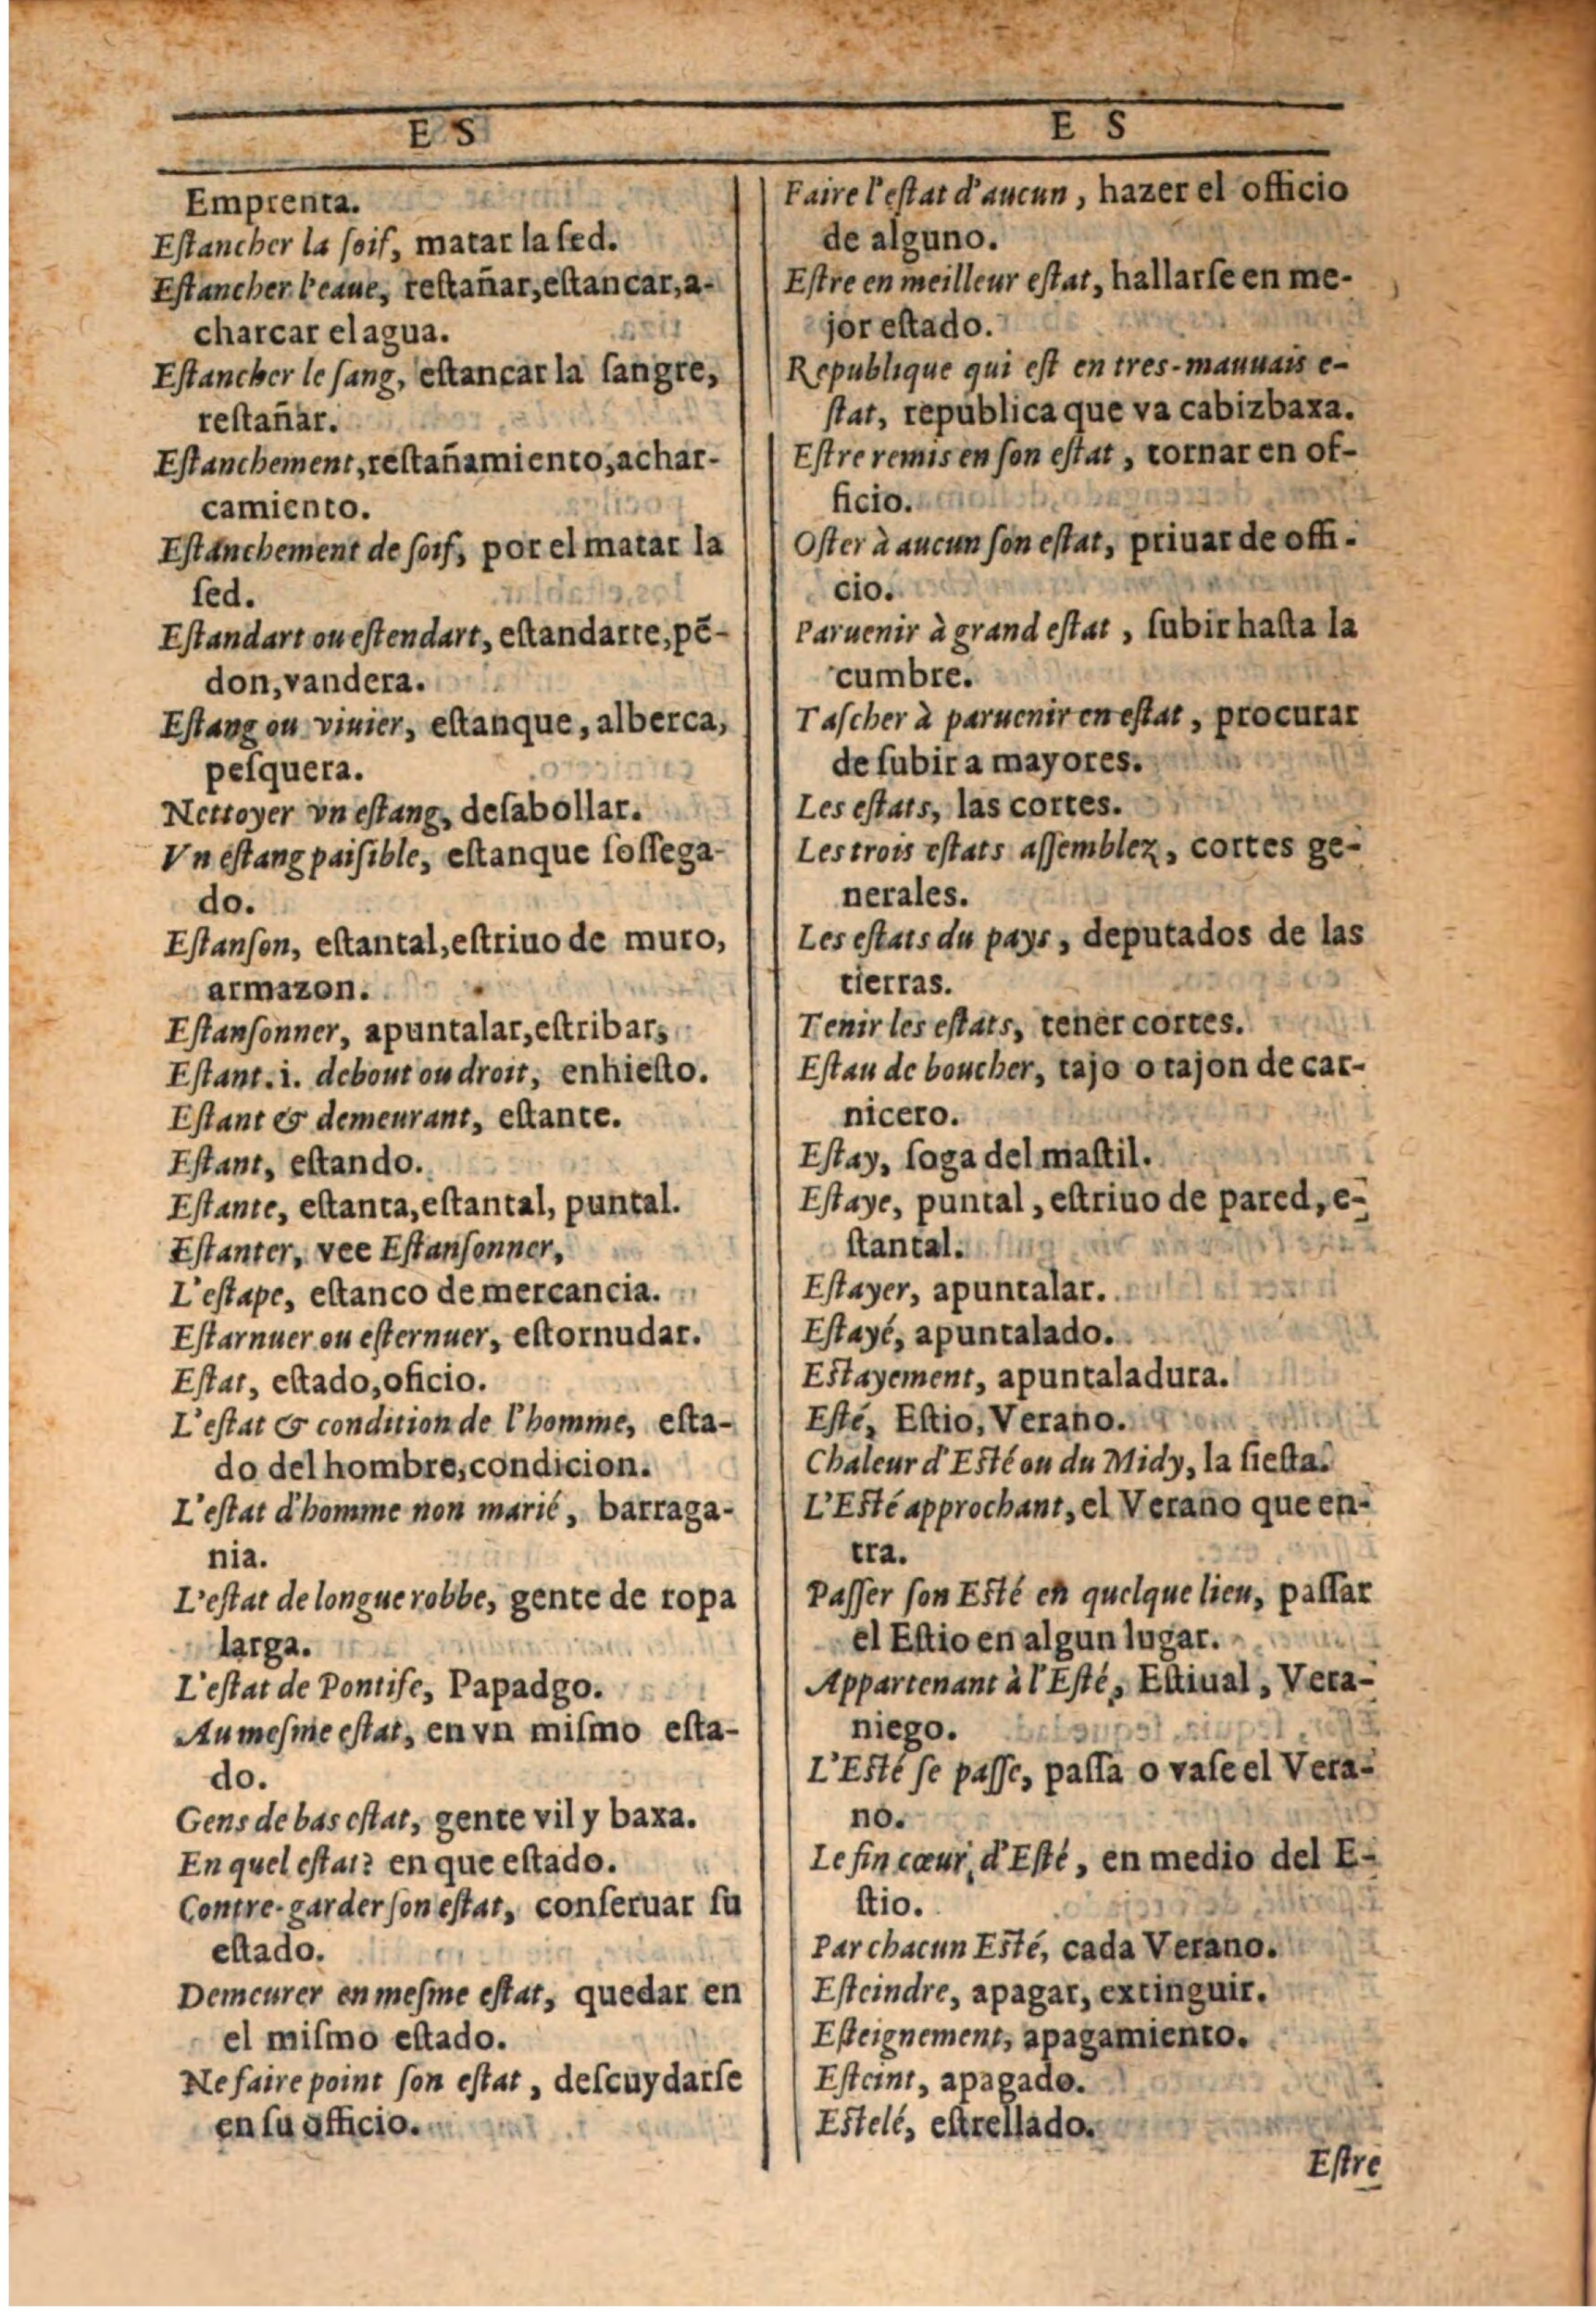 E S
Emprenta.
Eſtancher la ſoif, matar la ſed.
Eſtancher l'eaue, reſtañar, eſtancar, a-
charcar el agua.
Eſtancher le ſang, eſtancar la ſangre,
reſtañar.
Eſtanchement, reſtañamiento, achar-
camiento.
Eſtanchement de ſoif, por el matar la
ſed.
Eſtandart ou eſtendart, eſtandarte, pẽ-
don, vandera.
Eſtang ou vivier, eſtanque, alberca,
peſquera.
Nettoyer vn eſtang, deſabollar.
Vn eſtang paiſible, eſtanque ſoſſega-
do.
Eſtanſon, eſtantal, eſtriuo de muro,
armazon.
Eſtanſonner, apuntalar, eſtribar,
Eſtant. i. debout ou droit, enhieſto.
Eſtant & demeurant, eſtante.
Eſtant, eſtando.
Eſtante, eſtanta, eſtantal, puntal.
Eſtanter, vee Eſtanſonner,
L'eſtape, eſtanco de mercancia.
Eſtarnuer ou eſternuer, eſtornudar.
Eſtat, eſtado, oficio.
L'eſtat & condition de l'homme, eſta-
do del hombre, condicion.
L'eſtat d'homme non marié, barraga-
nia.
L'eſtat de longue robbe, gente de ropa
larga.
L'eſtat de Pontife, Papadgo.
Au meſme eſtat, en vn miſmo eſta-
do.
Gens de bas eſtat, gente vil y baxa.
En quel eſtat? en que eſtado.
Contre-garder ſon eſtat, conſeruar ſu
eſtado.
Demeurer en meſme eſtat, quedar en
el miſmo eſtado.
Ne faire point ſon eſtat, deſcuydarſe
en ſu officio.
E S
Faire l'eſtat d'aucun, hazer el officio
de alguno.
Eſtre en meilleur eſtat, hallarſe en me-
jor eſtado.
Republique qui eſt en tres-mauuais e-
ſtat, republica que va cabizbaxa.
Eſtre remis en ſon eſtat, tornar en of-
ficio.
Oſter à aucun ſon eſtat, priuar de offi-
cio.
Paruenir à grand eſtat, ſubir haſta la
cumbre.
Taſcher à paruenir en eſtat, procurar
de ſubir a mayores.
Les eſtats, las cortes.
Les trois eſtats aſſemblez, cortes ge-
nerales.
Les eſtats du pays, deputados de las
tierras.
Tenir les eſtats, tener cortes.
Eſtau de boucher, tajo o tajon de car-
nicero.
Eſtay, ſoga del maſtil.
Eſtaye, puntal, eſtriuo de pared, e-
ſtantal.
Eſtayer, apuntalar.
Eſtayé, apuntalado.
Eſtayement, apuntaladura.
Eſté, Eſtio, Verano.
Chaleur d'Eſté ou du Midy, la ſieſta.
L'Eſté approchant, el Verano que en-
tra.
Paſſer ſon Eſté en quelque lieu, paſſar
el Eſtio en algun lugar.
Appartenant à l'Eſté, Eſtiual, Vera-
niego.
L'Eſté ſe paſſe, paſſa o vaſe el Vera-
no.
Le fin cœur d'Eſté, en medio del E-
ſtio.
Par chacun Eſté, cada Verano.
Eſteindre, apagar, extinguir.
Eſteignement, apagamiento.
Eſteint, apagado.
Eſtelé, eſtrellado.
Eſtre